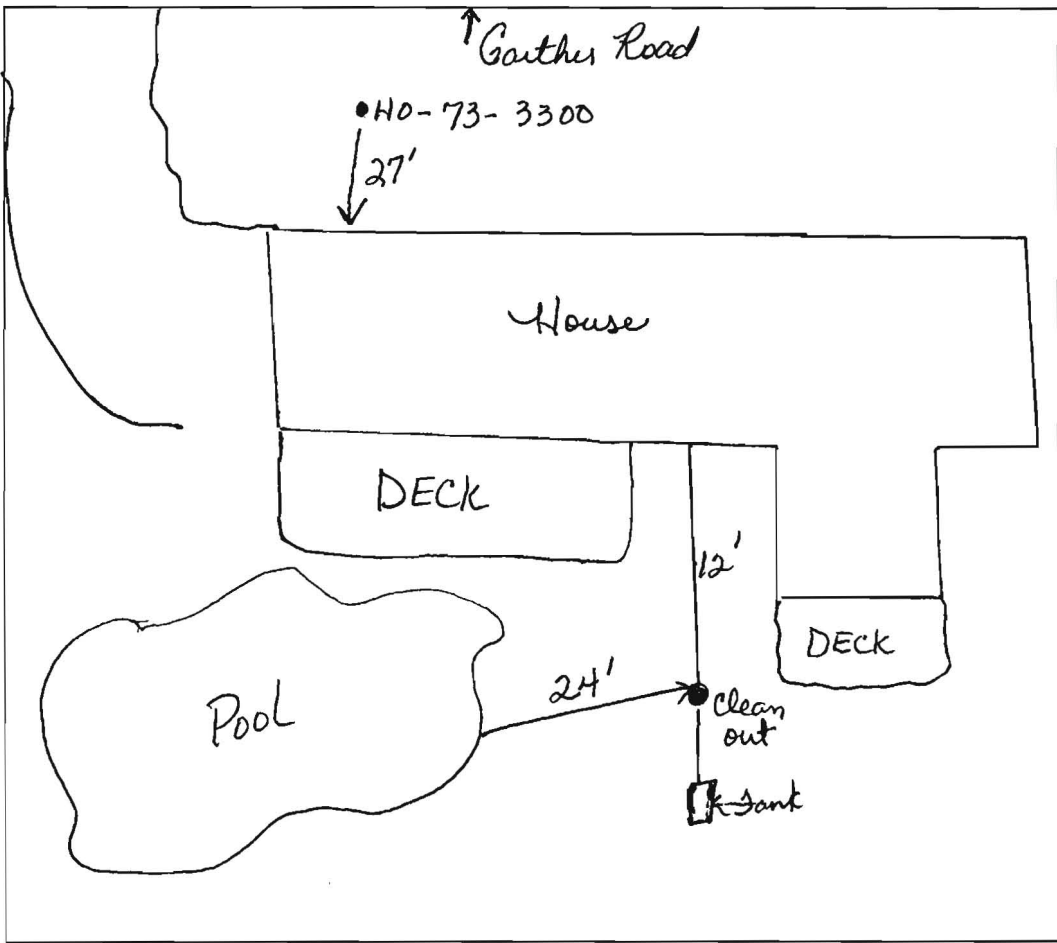 Gaither Road
HO-73-3300
27'
House
DECK
12'
DECK
24'
Pool
Clean
out
Tank